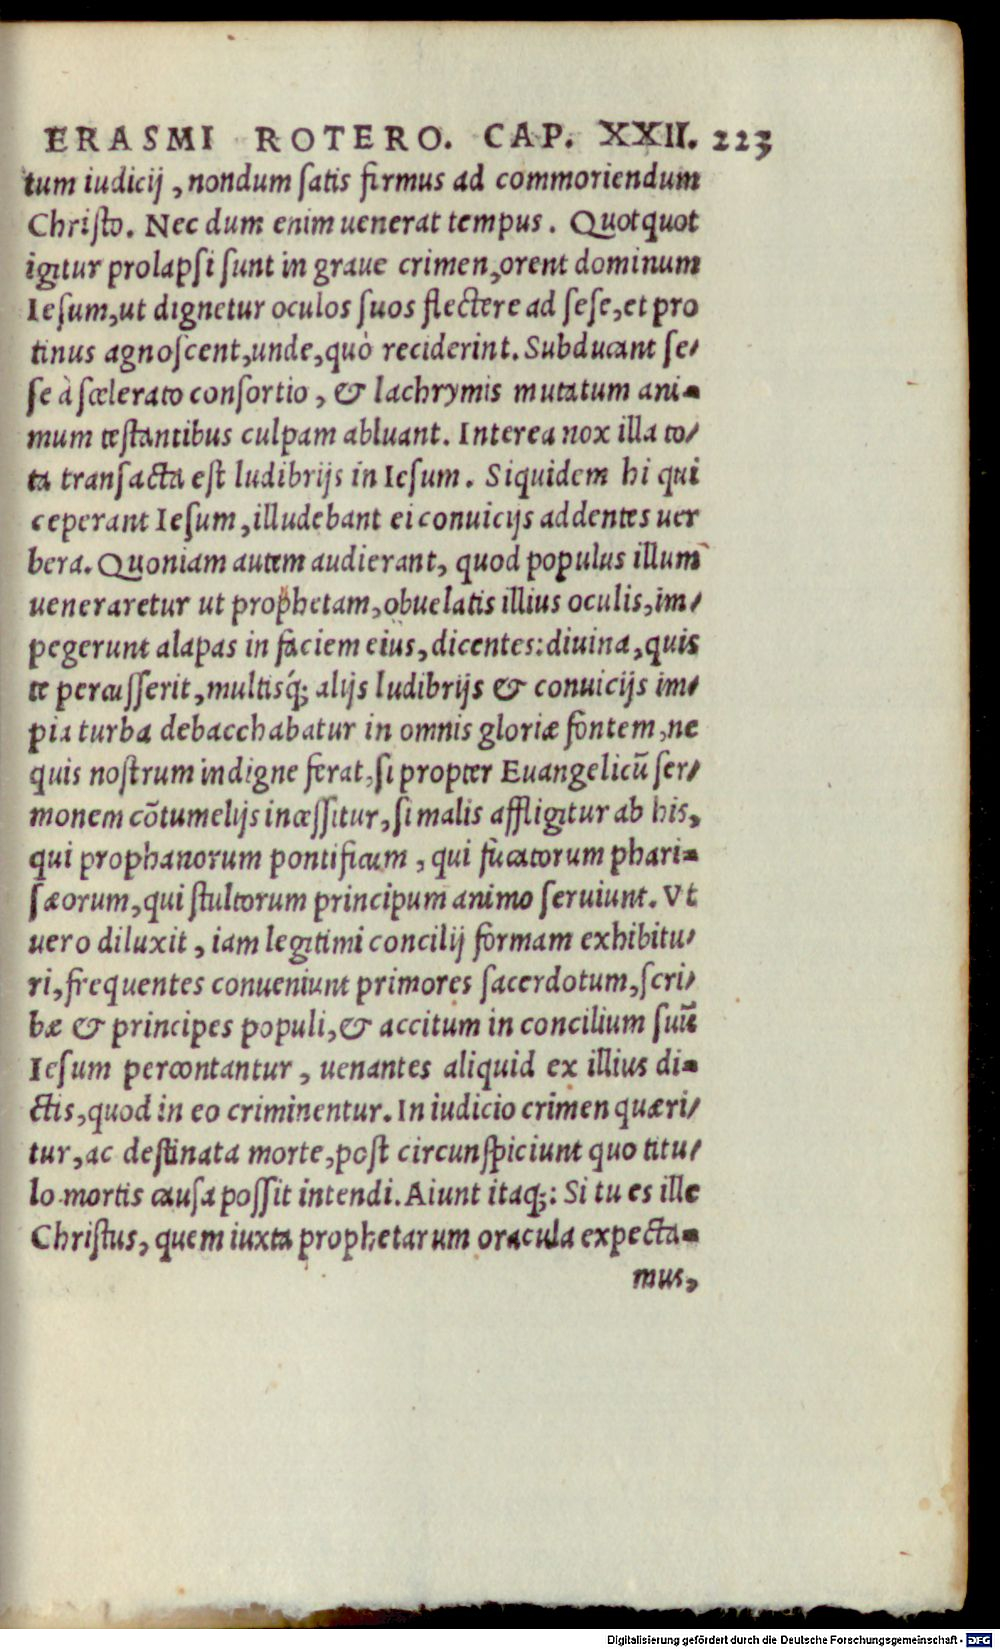 ERASMI ROTERO. CAP. XXII. 223
tum iudicij, nondum ſatis firmus ad commoriendum
Chriſto. Nec dum enim uenerat tempus. Quotquot
igitur prolapſi ſunt in graue crimen, orent dominum
Ieſum, ut dignetur oculos ſuos flectere ad ſeſe, et pro
tinus agnoſcent, unde, quò reciderint. Subducant ſe-
ſe à ſcelerato conſortio, & lachrymis mutatum ani-
mum teſtantibus culpam abluant. Interea nox illa to-
ta tranſacta eſt ludibrijs in Ieſum. Siquidem hi qui
ceperant Ieſum, illudebant ei conuicijs addentes uer
bera. Quoniam autem audierant, quod populus illum
ueneraretur ut prophetam, obuelatis illius oculis, im-
pegerunt alapas in faciem eius, dicentes: diuina, quis
te percuſſerit, multisq́; alijs ludibrijs & conuicijs im-
pia turba debacchabatur in omnis gloriæ fontem, ne
quis noſtrum indigne ferat, ſi propter Euangelicũ ſer-
monem cõtumelijs inceſſitur, ſi malis affligitur ab his,
qui prophanorum pontificum, qui fucatorum phari-
ſæorum, qui ſtultorum principum animo ſeruiunt. Vt
uero diluxit, iam legitimi concilij formam exhibitu-
ri, frequentes conueniunt primores ſacerdotum, ſcri-
bæ & principes populi, & accitum in concilium ſuũ
Ieſum percontantur, uenantes aliquid ex illius di-
ctis, quod in eo criminentur. In iudicio crimen quæri-
tur, ac deſtinata morte, poſt circunſpiciunt quo titu-
lo mortis cauſa poſſit intendi. Aiunt itaq;: Si tu es ille
Chriſtus, quem iuxta prophetarum oracula expecta-
mus,
Digitalisierung gefördert durch die Deutsche Forschungsgemeinschaft - DFG